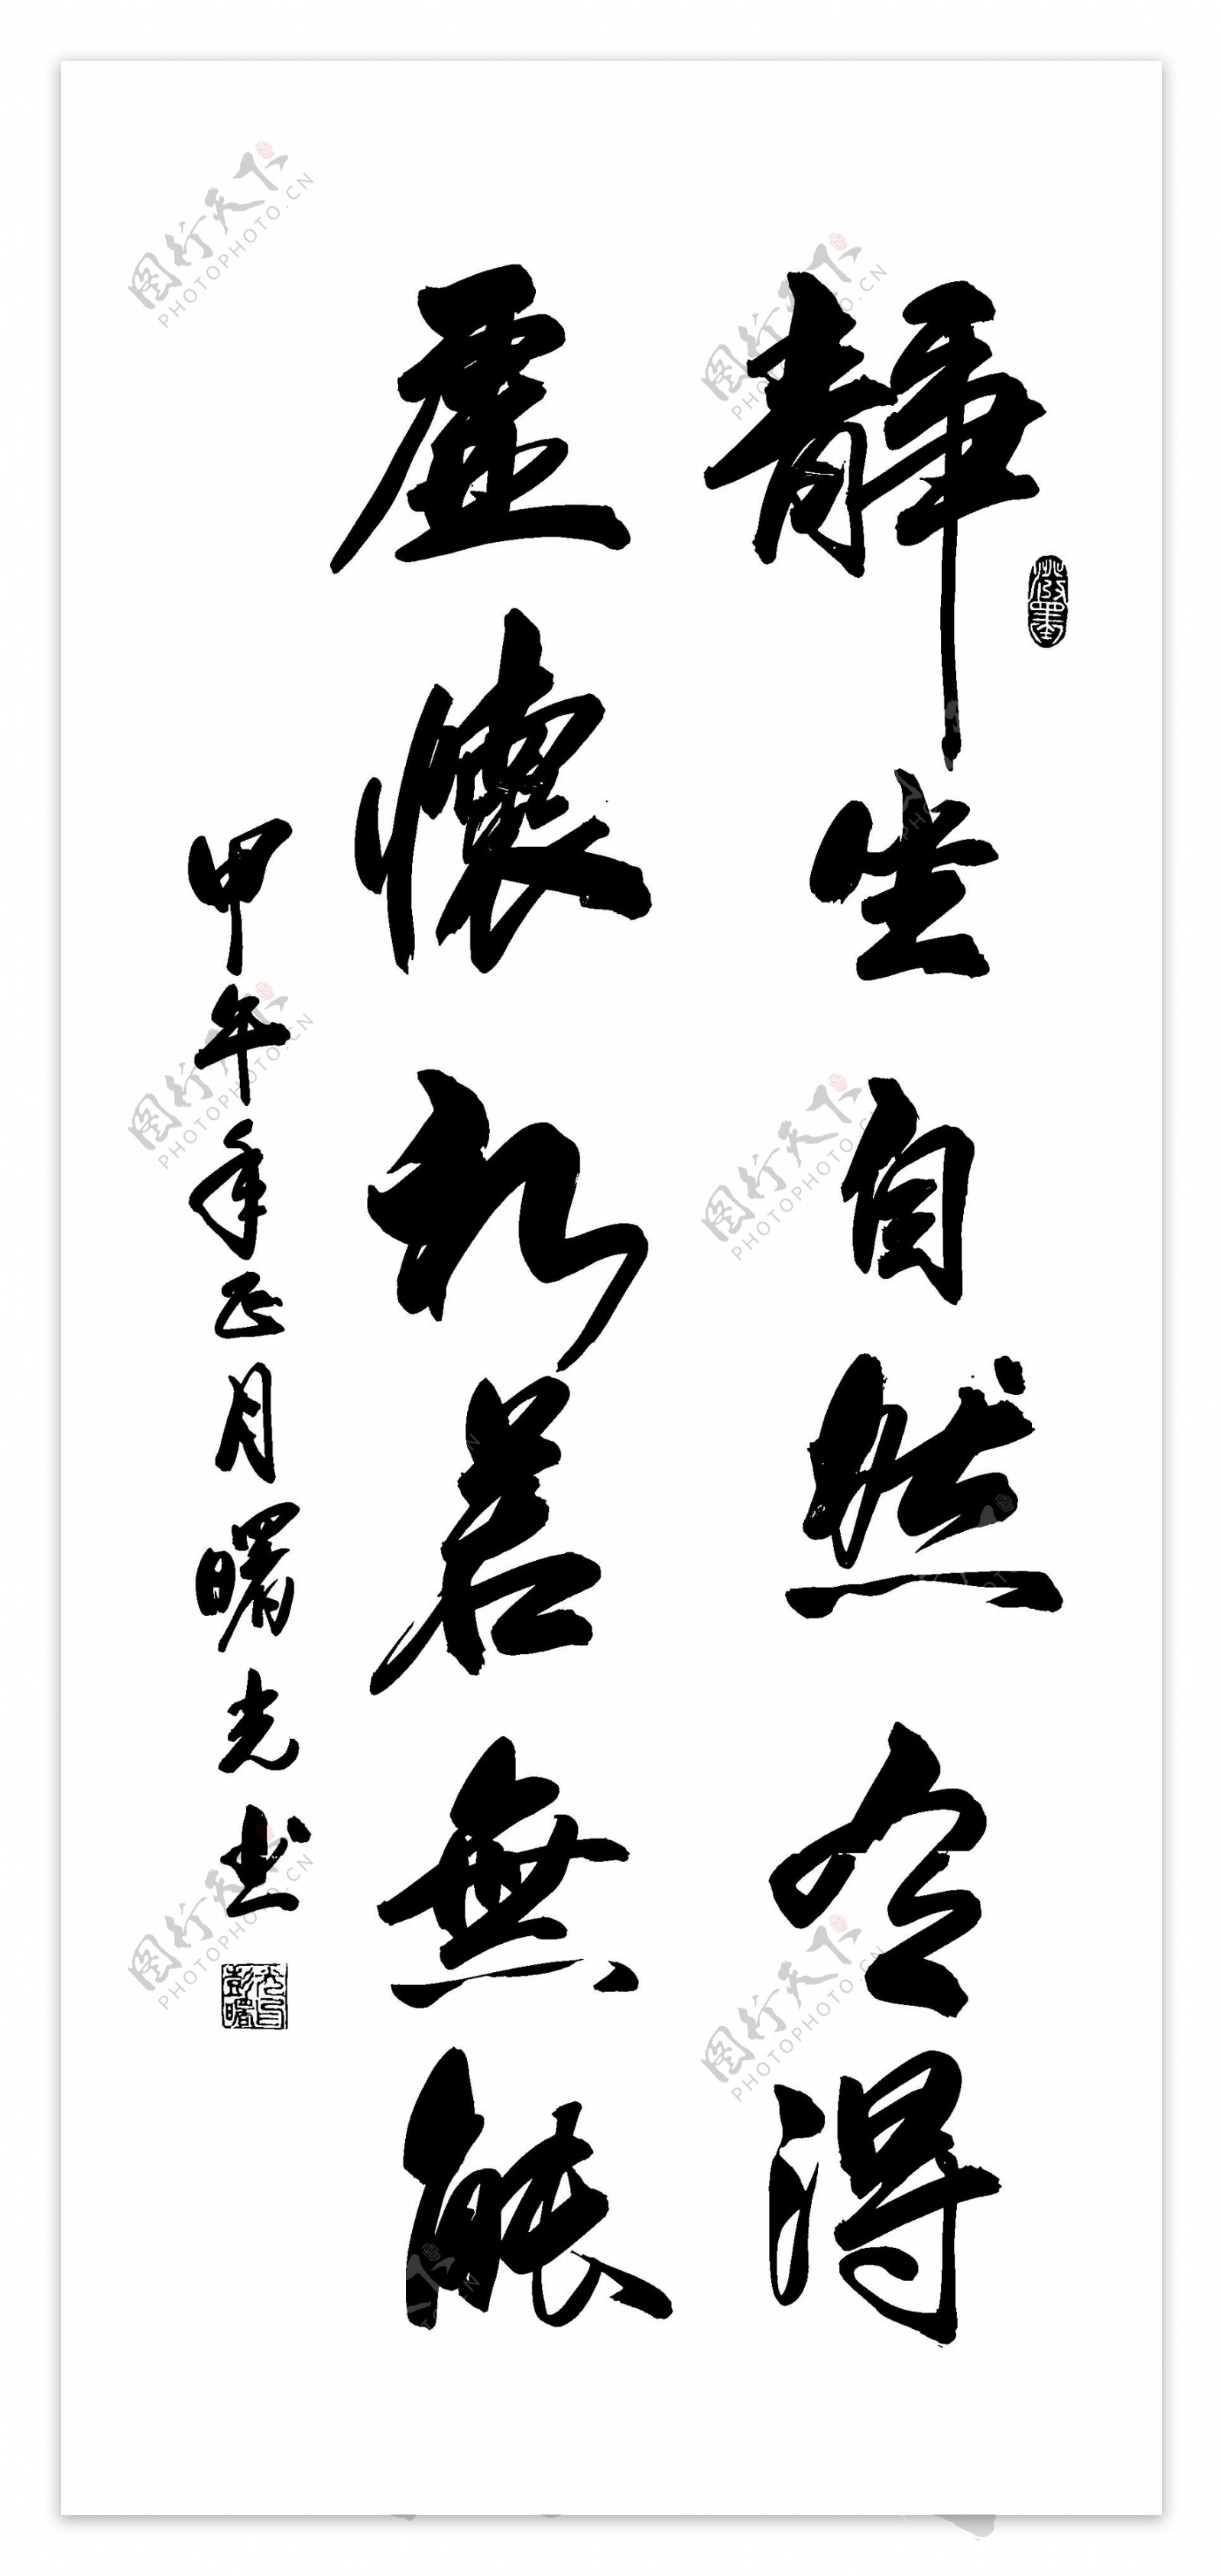 潑墨
靜坐自然有得
虛懷初若無能
甲午年正月曙光书
光印
彭曙
图行天下
PHOTOPHOTO.CN
图行天下
PHOTOPHOTO.CN
图行天下
PHOTOPHOTO.CN
图行天下
PHOTOPHOTO.CN
图行天下
PHOTOPHOTO.CN
图行天下
PHOTOPHOTO.CN